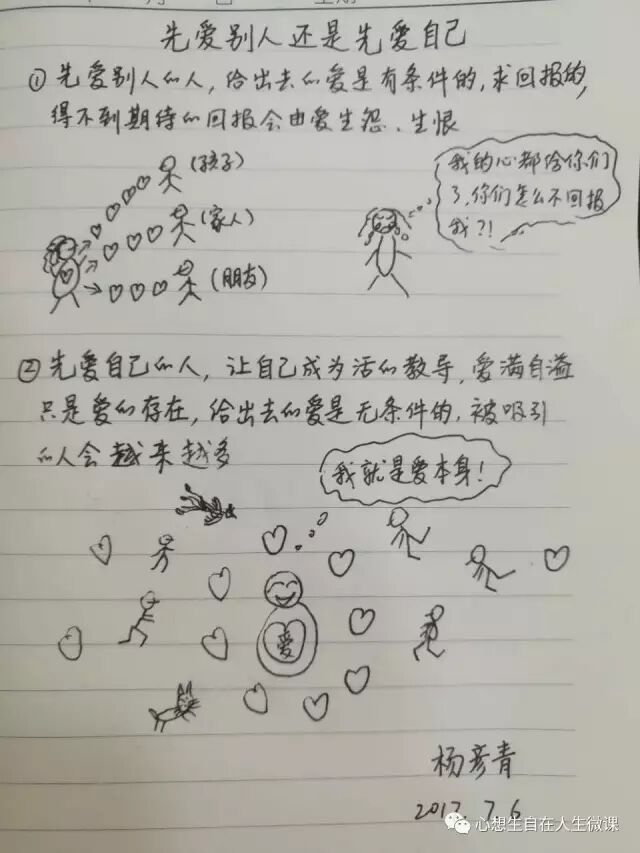 先爱别人还是先爱自己
①先爱别人的人，给出去的爱是有条件的，求回报的，
得不到期待的回报会由爱生怨、生恨
(孩子)
(家人)
(朋友)
我的心都给你们
了，你们怎么不回报
我？！
②先爱自己的人，让自己成为活的教导，爱满自溢
只是爱的存在，给出去的爱是无条件的，被吸引
的人会越来越多
我就是爱本身！
爱
杨彦青
2017.7.6
心想生自在人生微课